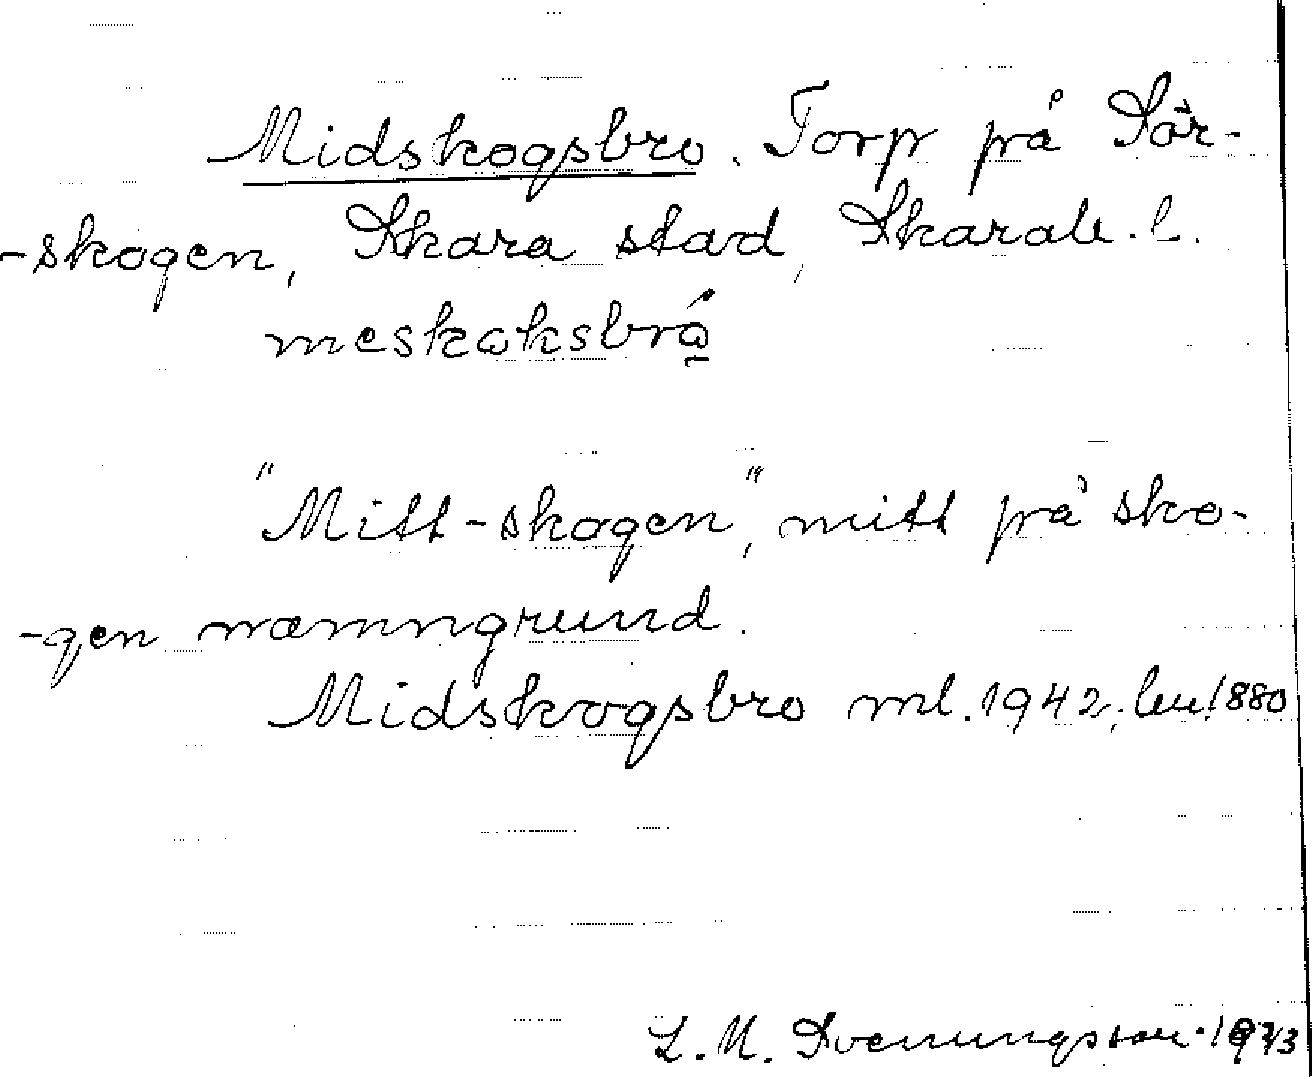 Midskogsbro. Torp på Sör-
-skogen, Skara stad, Skarab. l.
meskoksbró̱
"Mitt-skogen", mitt på sko-
-gen namngrund.
Midskogsbro ml. 1942, lm 1880
L. M. Svenungsson. 1943